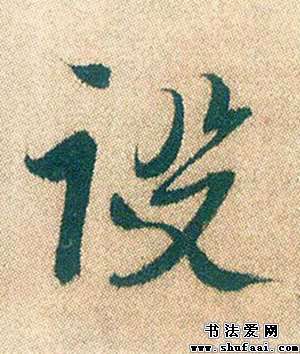 设
书法爱网
www.shufaai.com